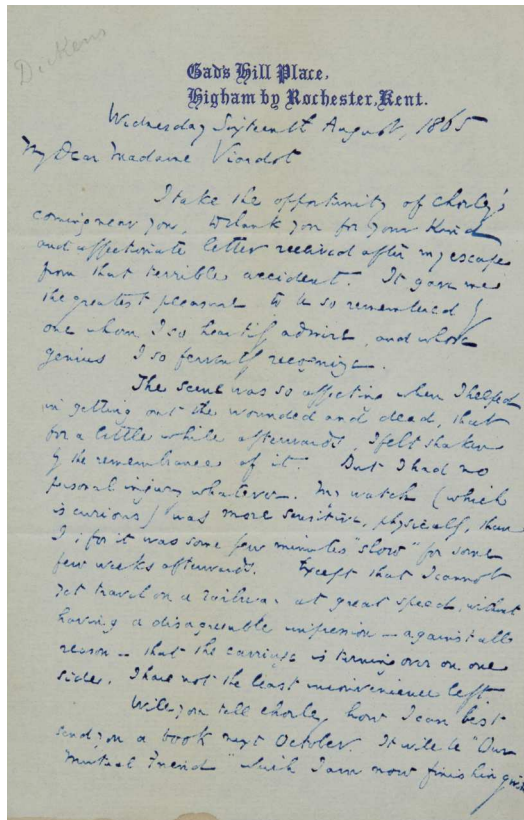 Dickens
Gad's Hill Place,
Higham by Rochester, Kent.
Wednesday Sixteenth August, 1865
My Dear Madame Viardot
I take the opportunity of Chorley's
coming near you, to thank you for your kind
and affectionate letter received after my escape
from that terrible accident. It gave me
the greatest pleasure to be so remembered by
one whom I so heartily admire, and whose
genius I so fervently recognize.
The scene was so affecting when I helped
in getting out the wounded and dead, that
for a little while afterwards I felt shaken
by the remembrance of it. But I had no
personal injury whatever. My watch (which
is curious) was more sensitive, physically, than
I; for it was some few minutes "slow" for some
few weeks afterwards. Except that I cannot
yet travel on a railway at great speed without
having a disagreeable impression – against all
reason – that the carriage is turning over on one
side, I have not the least inconvenience left.
Will you tell Chorley how I can best
send you a book next October. It will be "Our
Mutual Friend" which I am now finishing